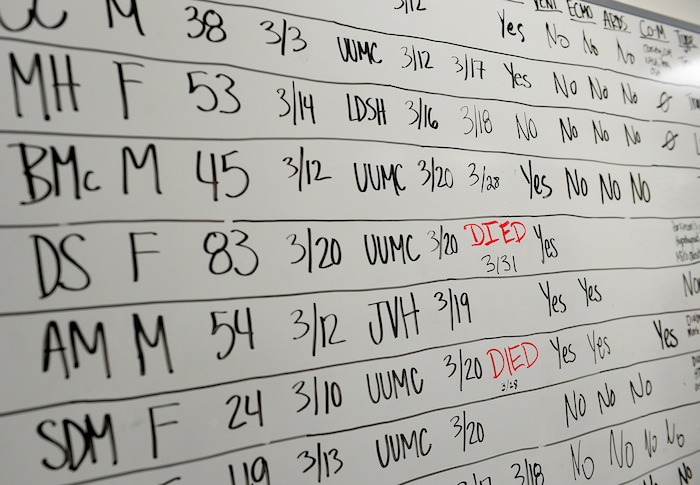 3/12 Yes No No No VENT ECMO ARDS Co-M
M 38 3/3 UUMC 3/12 3/17 Yes No No No Ø
MH F 53 3/14 LDSH 3/16 3/18 No No No No Ø
BMc M 45 3/12 UUMC 3/20 3/28 Yes No No No
DS F 83 3/20 UUMC 3/20 DIED Yes
3/31
AM M 54 3/12 JVH 3/19 Yes Yes
SDM F 24 3/10 UUMC 3/20 DIED Yes Yes Yes
3/28
49 3/13 UUMC 3/20 No No No
3/18 No No No No
No